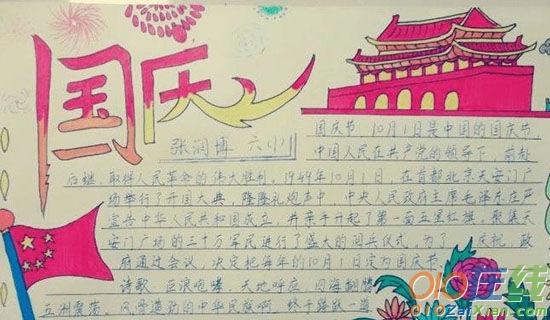 国庆
张润博 六(1)
国庆节,10月1日是中国的国庆节,
中国人民在共产党的领导下,前赴
后继,取得人民革命的伟大胜利,1949年10月1日,在首都北京天安门广
场举行了开国大典,隆隆礼炮声中,中央人民政府主席毛泽东庄严
宣告中华人民共和国成立,并亲手升起了第一面五星红旗,聚集天
安门广场的三十万军民进行了盛大的阅兵仪式,为了 庆祝,政
府通过会议,决定把每年的10月1日定为国庆节。
诗歌:巨浪咆哮,天地呼应,四海翻腾
五洲震荡,风雷激动的中华民族啊 终于踏跃一
在线
ZaiXian.com